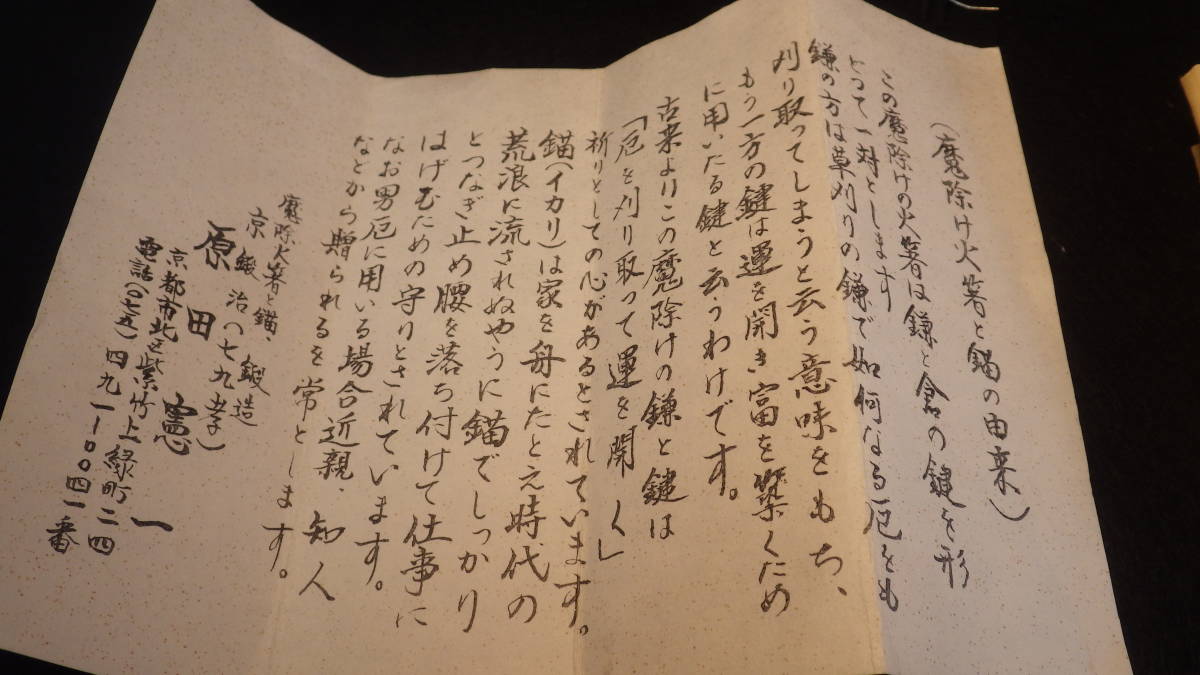 (魔除け火箸と錨の由来)
この魔除けの火箸は鎌と倉の鍵を形
どって一対とします
鎌の方は草刈りの鎌で如何なる厄をも
刈り取ってしまうと云う意味をもち、
もう一方の鍵は運を開き富を築くため
に用いたる鍵と云うわけです。
古来よりこの魔除けの鎌と鍵は
「厄を刈り取って運を開く」
祈りとしての心があるとされています。
錨(イカリ)は家を舟にたとえ時代の
荒浪に流されぬやうに錨でしっかり
とつなぎ止め腰を落ち付けて仕事に
はげむための守りとされています。
なお男厄に用いる場合近親、知人
などから贈られるを常とします。
魔除火箸と錨、鍛造
京鍛治(七九才)
原田憲一
京都市北区紫竹上緑町二四
電話(〇七五)四九一一〇〇四一番